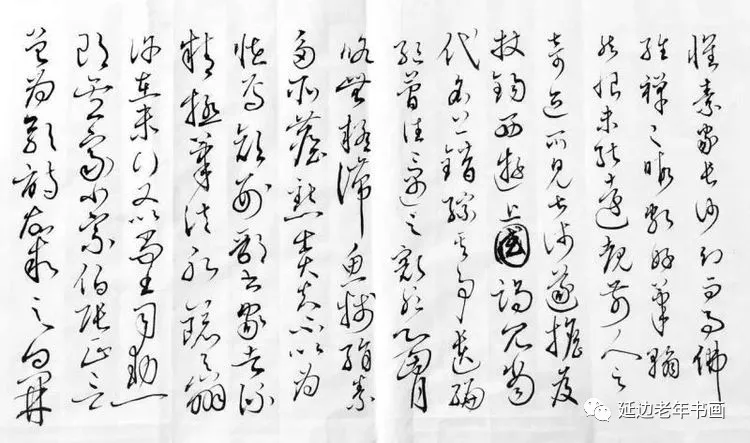 懷素家長沙幼而事佛
經禪之暇頗好筆翰
然恨未能遠覩前人之
奇迹所見甚淺遂擔笈
杖錫西遊上國謁見當
代名公錯綜其事遺編
絕簡往往遇之豁然心胸
略無疑滯魚牋絹素
多所塵點士大夫不以為
怪焉顏刑部書家者流
精極筆法水鏡之辨
許在末行又以尚書司勳
郎盧象小宗伯張正言
曾為歌詩故叙之曰開
延边老年书画